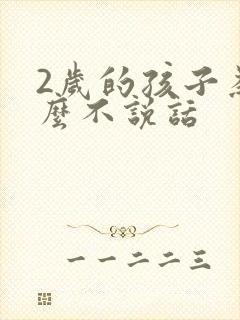 2歲的孩子
麼不説話
一一二二三